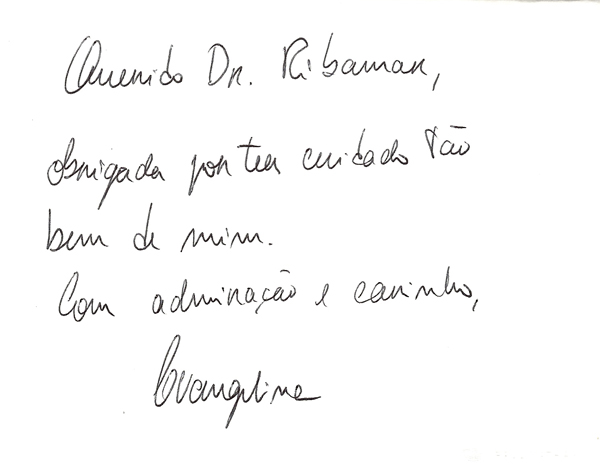 Querido Dr. Ribamar,
obrigada por ter cuidado tão
bem de mim.
Com admiração e carinho,
Evangeline